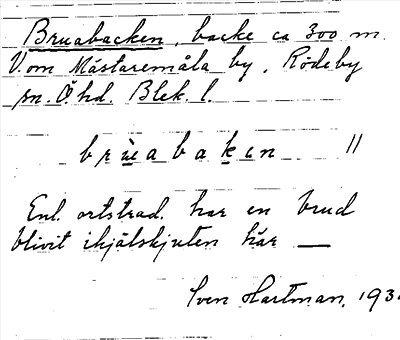 Bruabacken, backe ca 300 m.
V. om Mästaremåla by, Rödeby
sn. Ö. hd. Blek. l.
brùabakan 11
Enl. ortstrad. har en brud
blivit ihjälskjuten här —
Sven Hartman, 193